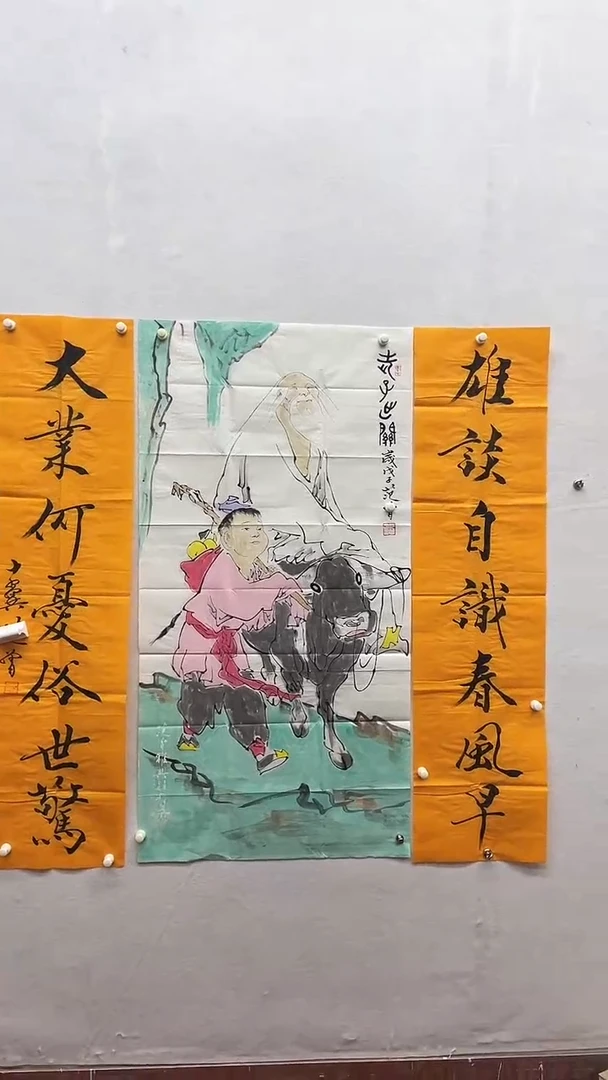 雄談自識春風早
老子出關
歲戊子
大業何憂俗世驚
十翼